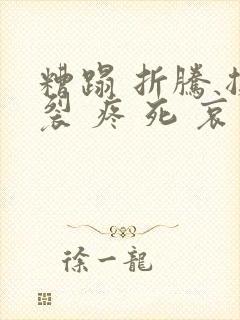 糟蹋 折騰
裂 疼 死 哀
徐一龍